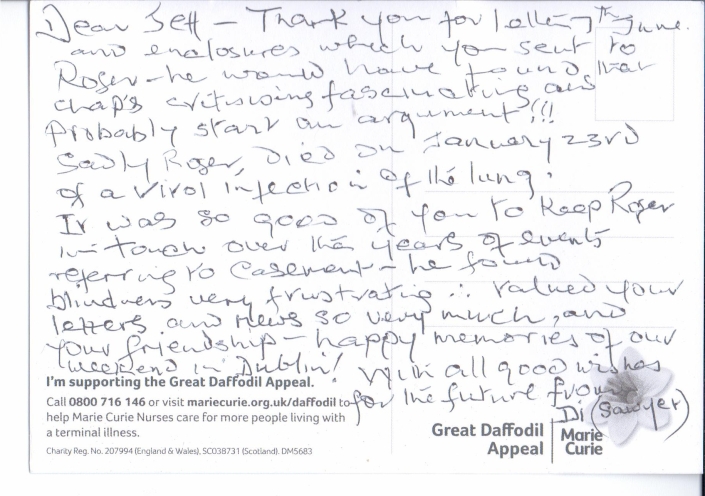 Dear Jeff – Thank you for letter 7th June.
and enclosures which you sent to
Roger – he would have found that
chap's critisising fascinating and
Probably start an argument!!!
Sadly Roger, Died on January 23rd
of a Virol Infection of the lung.
It was so good of you to keep Roger
in – touch over the years of events
referring to Casement – he found
blindness very frustrating ∴ valued your
letters and news so very much, and
your friendship – happy memories of our
weekend in Dublin! With all good wishes
for the future from
Di (Sawyer)
I'm supporting the Great Daffodil Appeal.
Call 0800 716 146 or visit mariecurie.org.uk/daffodil to
help Marie Curie Nurses care for more people living with
a terminal illness.
Charity Reg. No. 207994 (England & Wales), SC038731 (Scotland). DM5683
Great Daffodil
Appeal
Marie
Curie